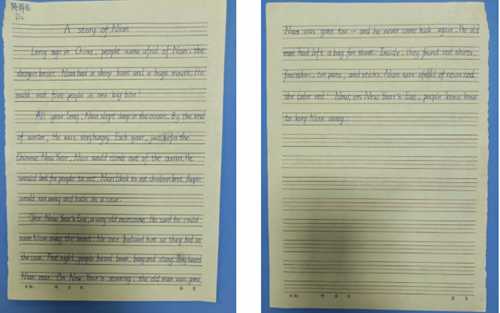 A story of Nian
Long ago in China, people were afraid of Nian, the
dragon beast. Nian had a sharp horn and a huge mouth. He
could eat five people in one big bite!
All year long, Nian slept deep in the ocean. By the end
of winter, he was very hungry. Each year, just before the
Chinese New Year, Nian would climb out of the ocean. He
would look for people to eat. Nian liked to eat children best. People
would run away and hide in a cave.
One New Year's Eve, a very old man came. He said he could
scare Nian away the beast. No one believed him so they hid in
the cave. That night, people heard boom, bang and clang. They heard
Nian roar. On New Year's morning, the old man was gone.
Nian was gone too — and he never came back again. The old
man had left a bag for them. Inside, they found red shirts,
firecrackers, tin pans, and sticks. Nian were afraid of noise and
the color red! Now, on New Year's Eve, people know how
to keep Nian away.